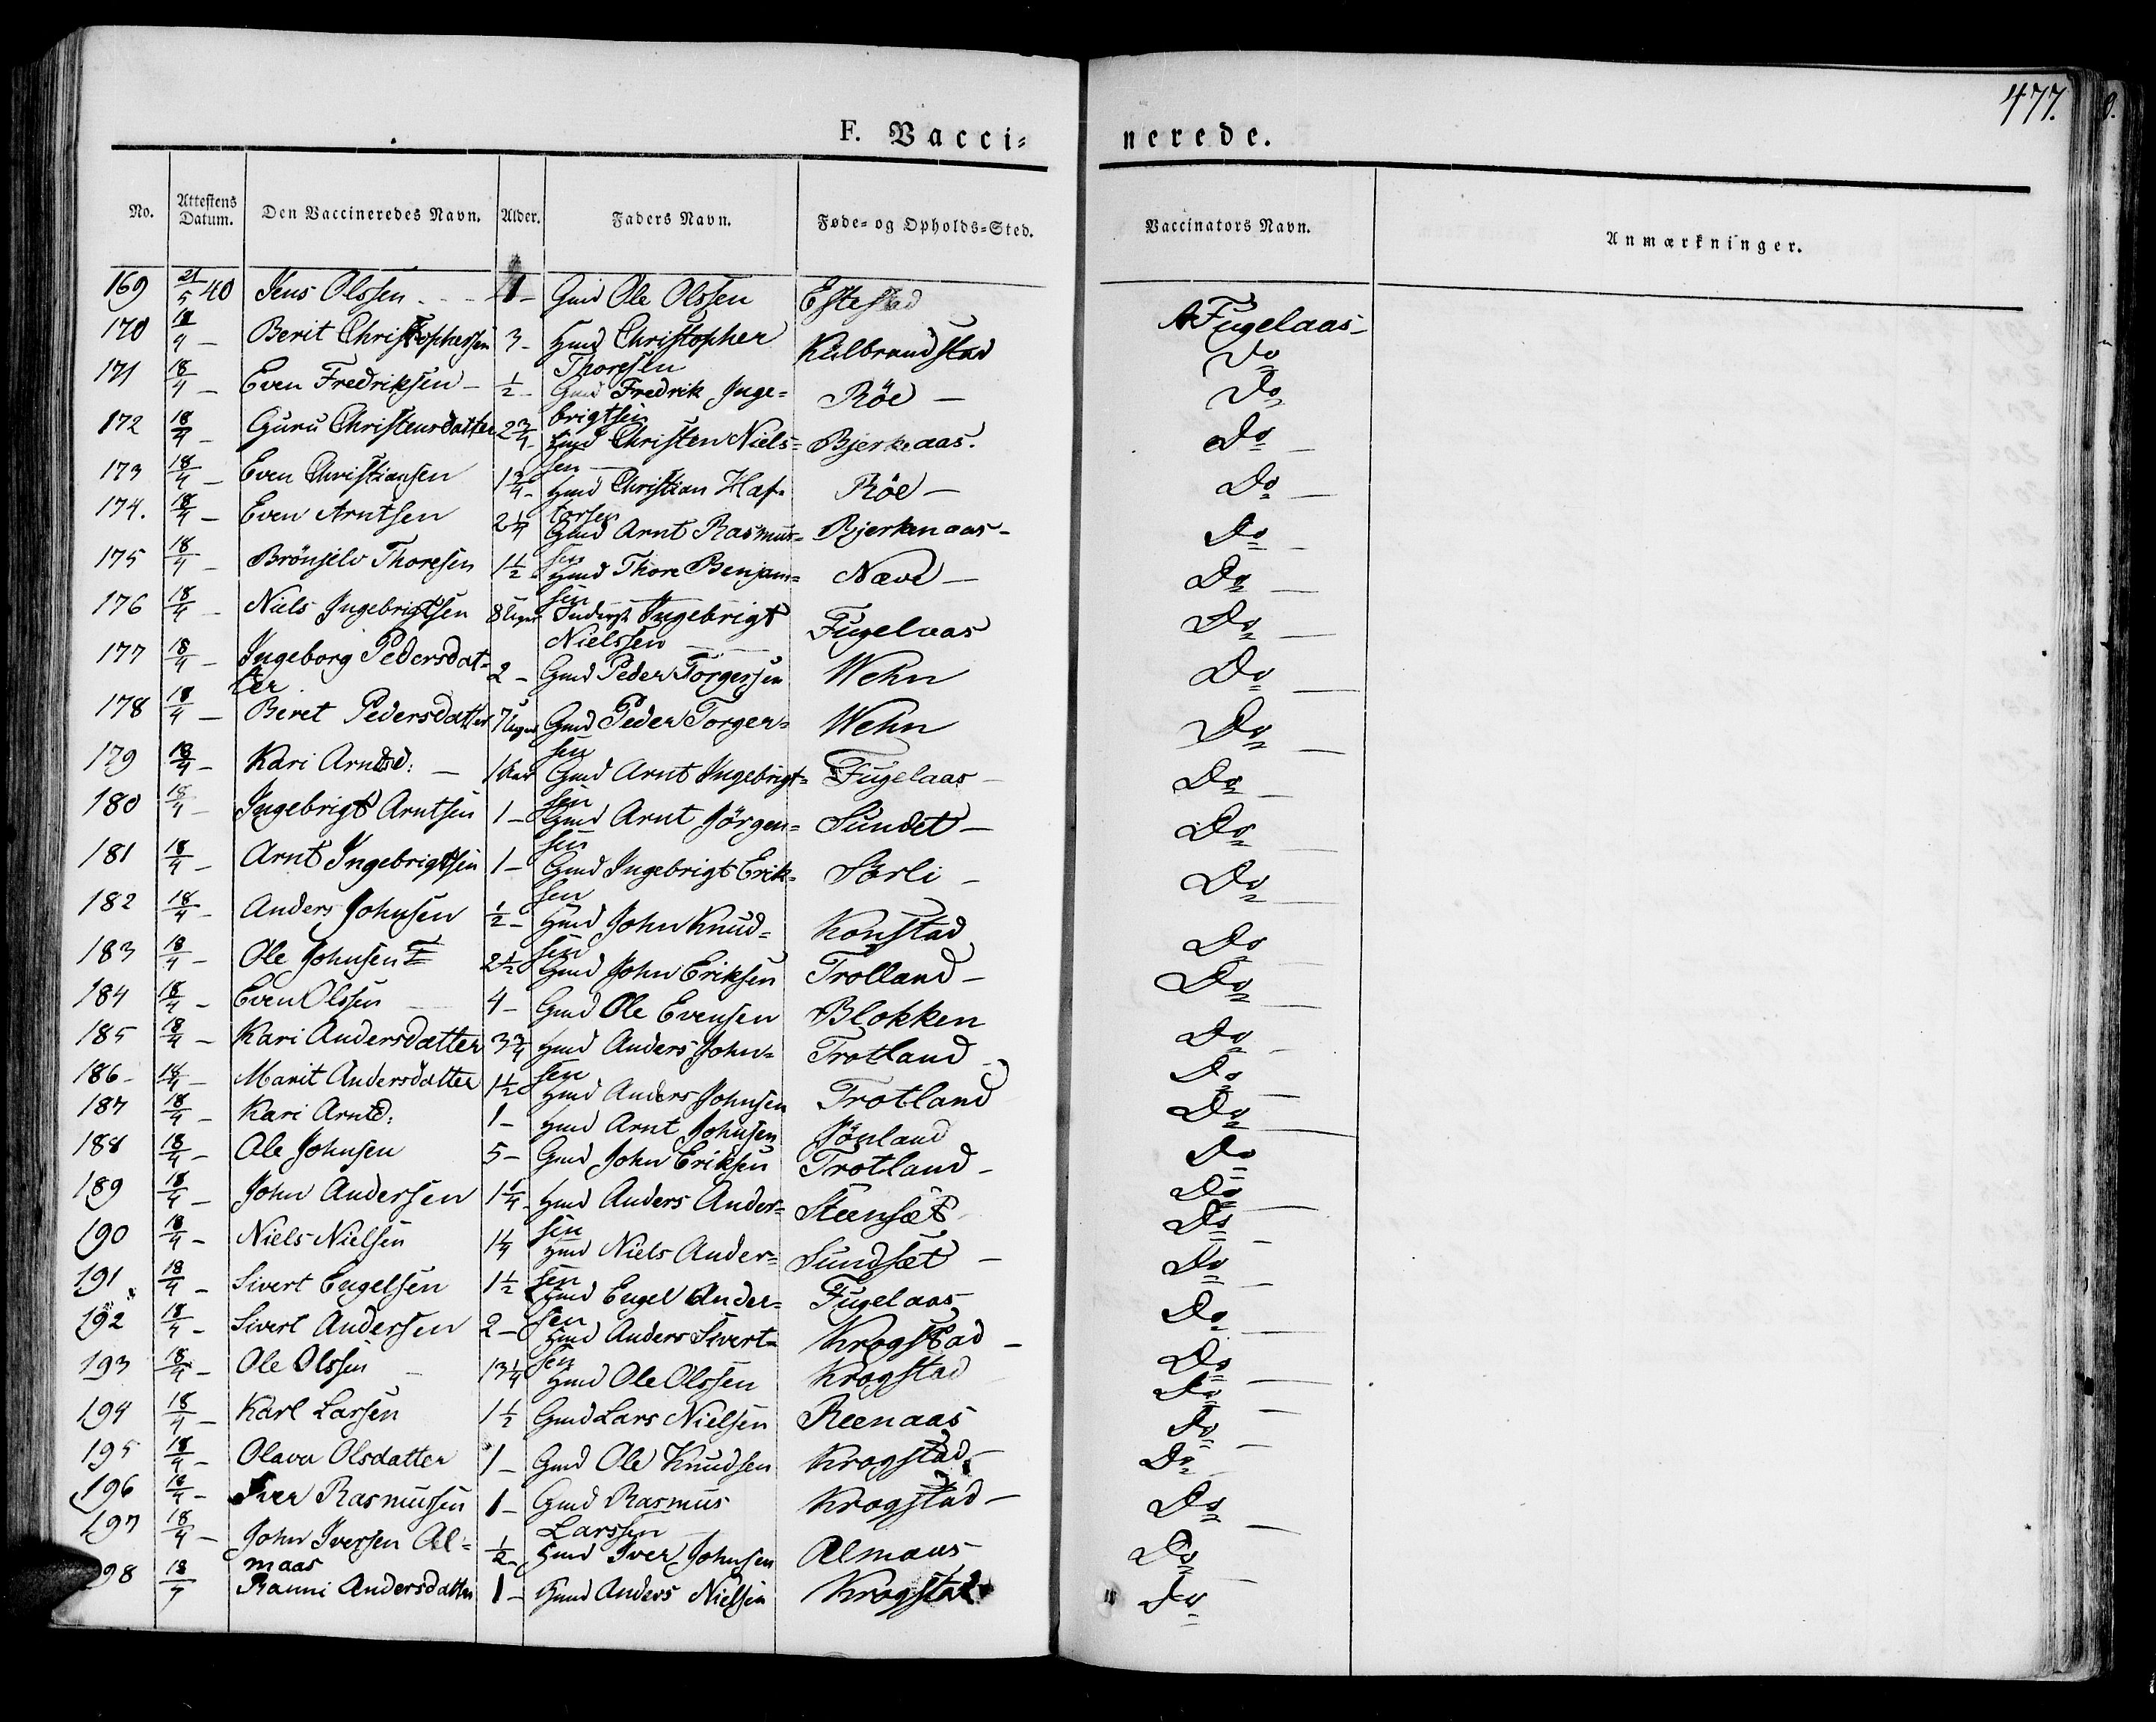 477.
F. Vacci=
nerede.
No. Attestens Datum. Den Vaccineredes Navn. Alder. Faders Navn. Føde- og Opholds-Sted. Vaccinators Navn. Anmærkninger.
169 21/5 40 Jens Olssen - 1 - Gmd Ole Olssen Estestad A Fugelaas -
170 18/4 - Berit Christophersen 3 - Hmd Christopher Thoresen Kulbrandstad Do
171 18/4 - Even Fredriksen - 1/2 - Gmd Fredrik Inge=brigtsen Röe - Do
172 18/4 - Guru Christensdatter 2 3/4 Hmd Christen Niels=sen Bjerkeaas. Do -
173 18/4 - Even Christiansen 1 3/4 - Hmd Christian Haf=torsen Röe - Do -
174. 18/4 - Even Arntsen 2 1/4 Gmd Arnt Rasmus=sen Bjerkenaas - Do -
175 18/4 - Brönjelv Thoresen 1 1/2 Hmd Thore Benjam=sen Næve - Do -
176 18/4 - Niels Ingebrigtsen 8 Uger Inderst Ingebrigt Nielssen Fugelaas Do -
177 18/4 - Ingeborg Pedersdat=ter 2 - Gmd Peder Torgersen Wehn Do -
178 18/4 - Beret Pedersdatter 7 Uger Gmd Peder Torger=sen Wehn Do -
179 18/4 - Kari Arntsd: - 1 Aar Gmd Arnt Ingebrigt=sen Fugelaas - Do -
180 18/4 - Ingebrigt Arntsen 1 - Gmd Arnt Jörgen=sen Sundet - Do -
181 18/4 - Arnt Ingebrigtsen 1 - Gmd Ingebrigt Erik=sen Sörli - Do -
182 18/4 - Anders Johnsen 1/2 - Hmd John Knud=sen Konstad Do -
183 18/4 - Ole Johnsen 2 1/2 Gmd John Eriksen Trotland - Do -
184 18/4 - Even Olssen 4 - Gmd Ole Evensen Blokken Do -
185 18/4 - Kari Andersdatter 3 3/4 Hmd Anders John=sen Trotland - Do -
186 - 18/4 - Marit Andersdatter 1 1/2 Hmd Anders Johnsen Trotland Do -
187 18/4 - Kari Arntd: 1 - Hmd Arnt Johnsen Jönland Do
188 18/4 - Ole Johnsen 5 - Gmd John Eriksen Trotland - Do -
189 18/4 - John Andersen 1 1/4 - Hmd Anders Ander=sen Steensæt Do -
190 18/4 - Niels Nielsen 1 1/4 Hmd Niels Ander=sen Sundset - Do -
191 18/4 - Sivert Engelsen 1 1/2 Gmd Engel Ander=sen Fugelaas Do -
192 18/4 - Sivert Andersen 2 - Hmd Anders Sivert=sen Krogstad - Do -
193 18/4 - Ole Olssen - 13 1/4 Hmd Ole Olssen Krogstad Do -
194 18/4 - Karl Larsen 1 1/2 Gmd Lars Nielsen Reenaas Do -
195 18/4 - Olava Olsdatter 1 - Gmd Ole Knudsen Krogstad - Do -
196 18/4 - Iver Rasmussen 1 - Gmd Rasmus Larssen Krogstad - Do -
197 18/4 - John Iversen Al=maas 1/2 - Hmd Iver Johnsen Almaas Do -
98 18/4 Ranni Andersdatter 1 - Hmd Anders Nielsen Krogstad Do